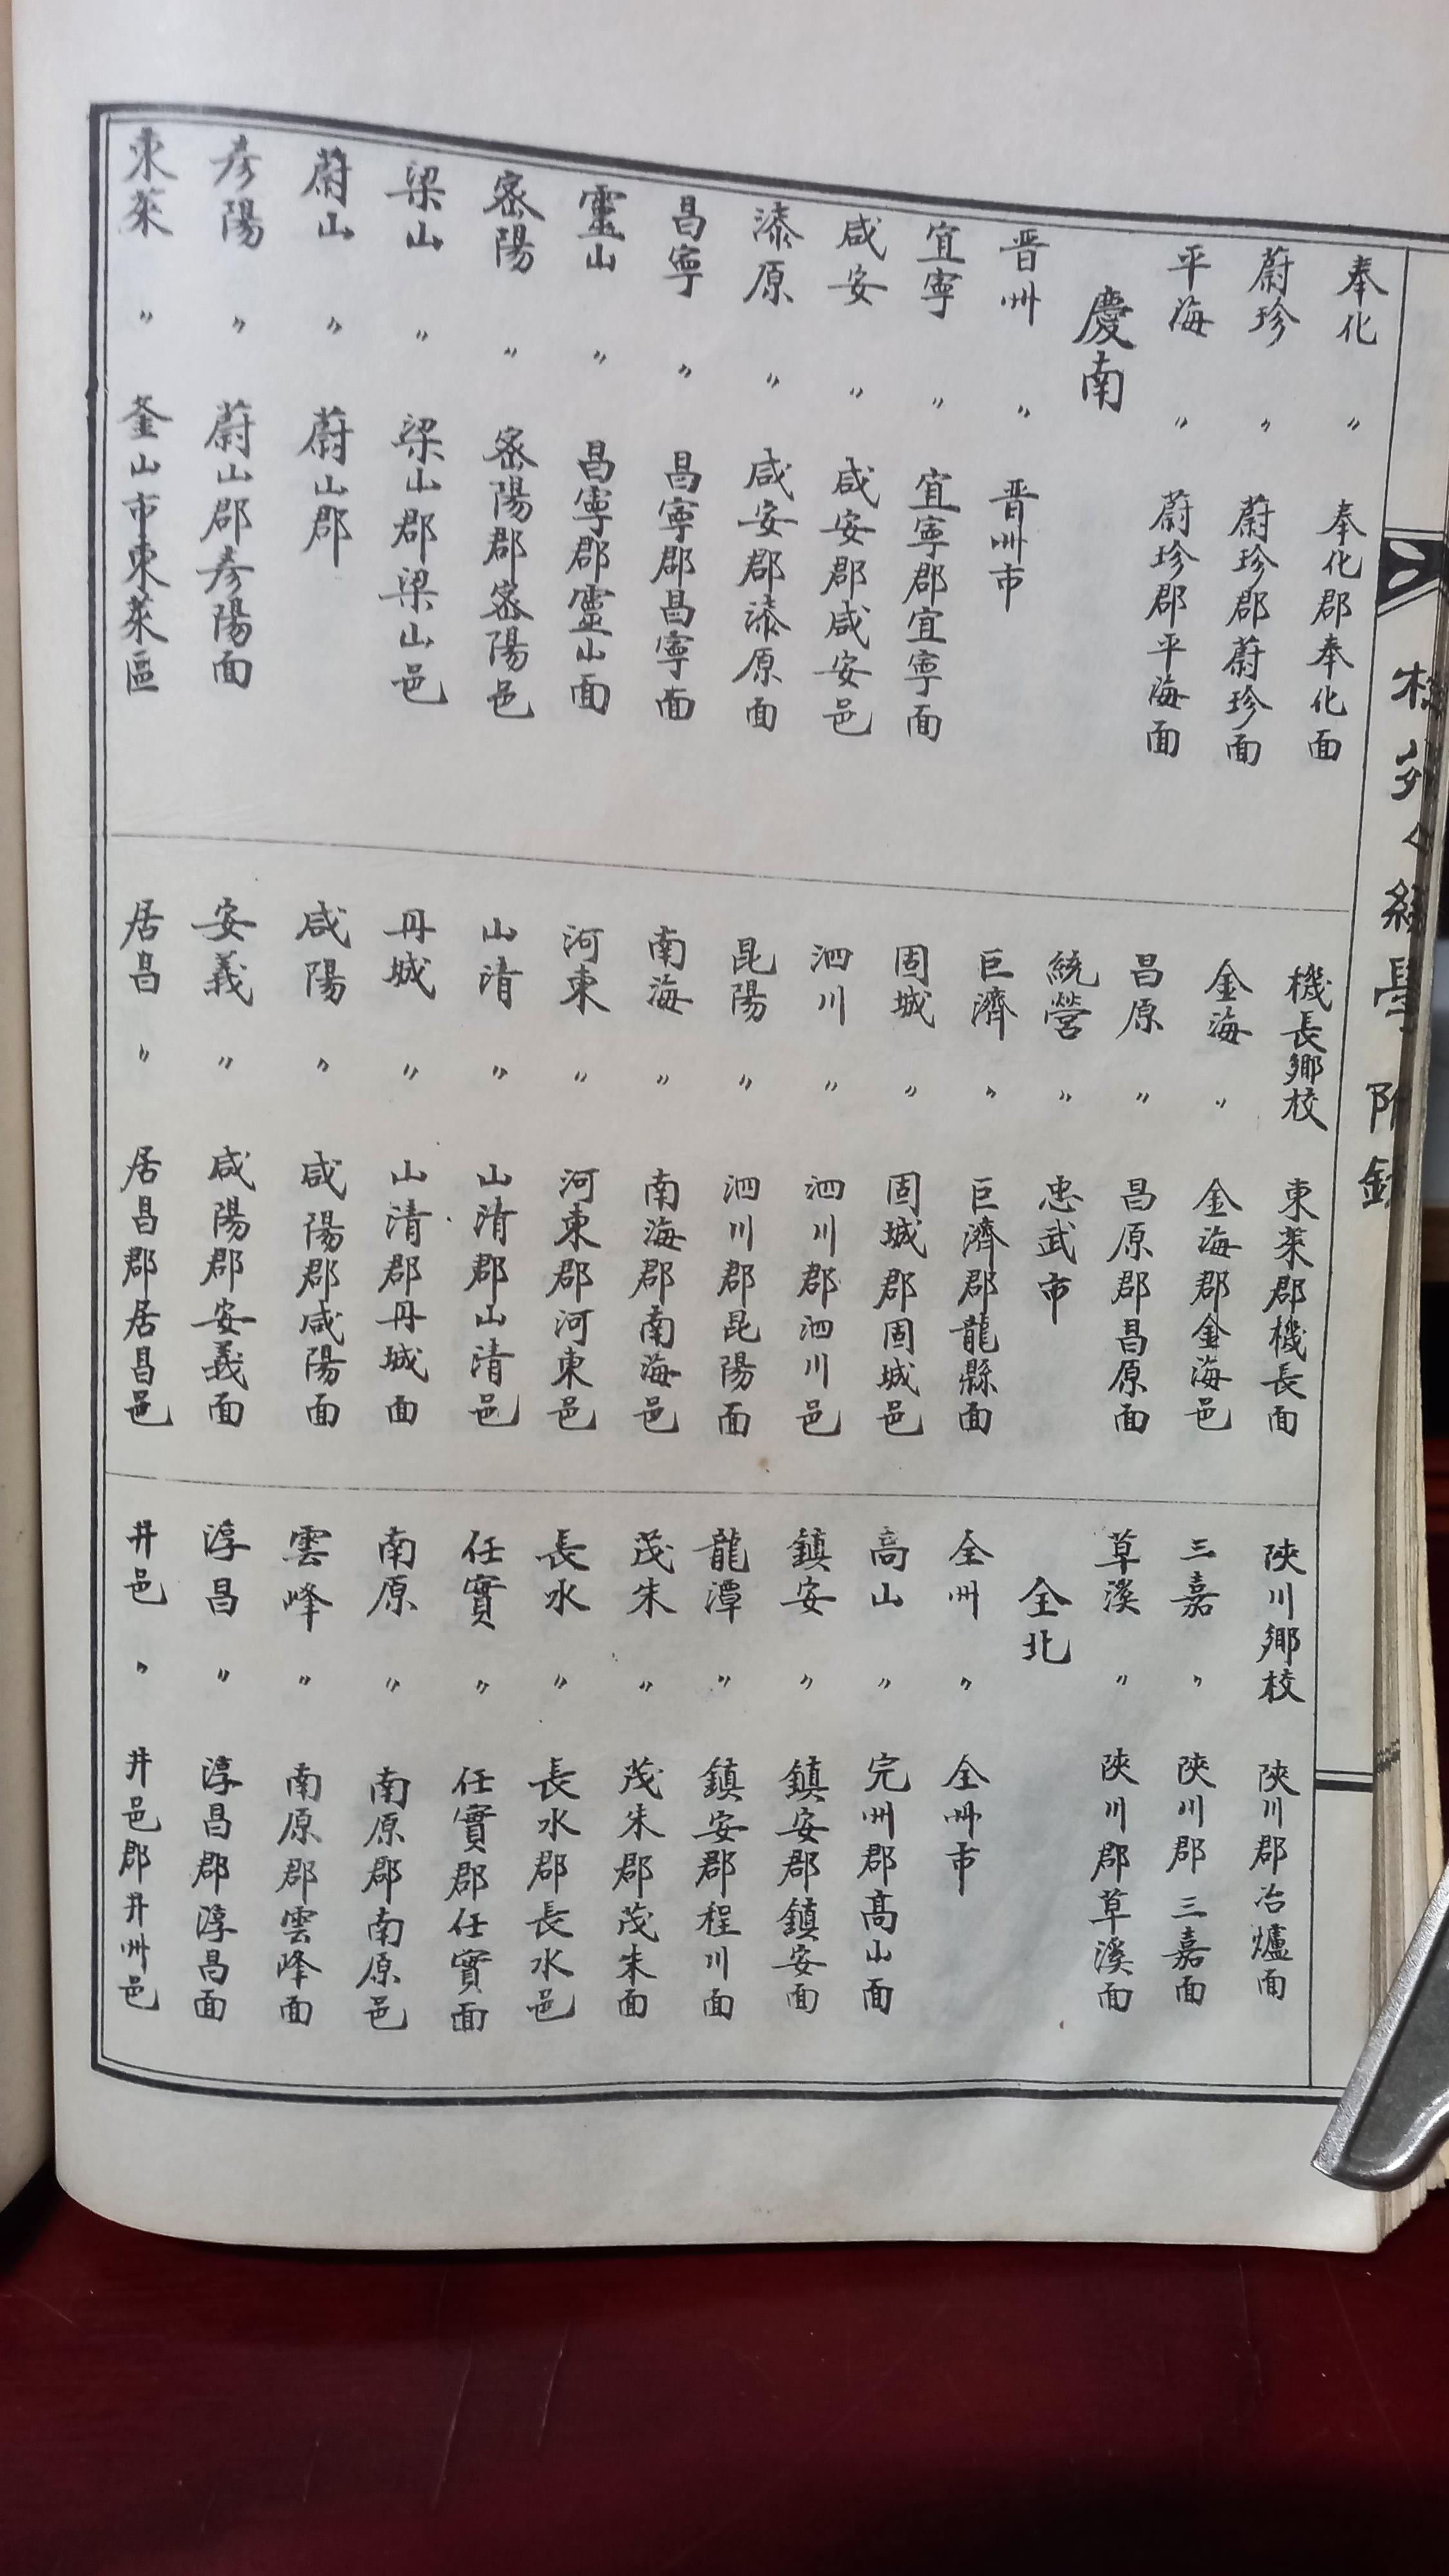 奉化 〃 奉化郡奉化面
蔚珍 〃 蔚珍郡蔚珍面
平海 〃 蔚珍郡平海面
慶南
晋州 〃 晋州市
宜寧 〃 宜寧郡宜寧面
咸安 〃 咸安郡咸安邑
漆原 〃 咸安郡漆原面
昌寧 〃 昌寧郡昌寧面
靈山 〃 昌寧郡靈山面
密陽 〃 密陽郡密陽邑
梁山 〃 梁山郡梁山邑
蔚山 〃 蔚山郡
彦陽 〃 蔚山郡彦陽面
東萊 〃 釜山市東萊區
機長鄉校 東萊郡機長面
金海 〃 金海郡金海邑
昌原 〃 昌原郡昌原面
統營 〃 忠武市
巨濟 〃 巨濟郡龍縣面
固城 〃 固城郡固城邑
泗川 〃 泗川郡泗川邑
昆陽 〃 泗川郡昆陽面
南海 〃 南海郡南海邑
河東 〃 河東郡河東邑
山清 〃 山清郡山清邑
丹城 〃 山清郡丹城面
咸陽 〃 咸陽郡咸陽面
安義 〃 咸陽郡安義面
居昌 〃 居昌郡居昌邑
陜川鄉校 陜川郡冶爐面
三嘉 〃 陜川郡三嘉面
草溪 〃 陜川郡草溪面
全北
全州 〃 全州市
高山 〃 完州郡高山面
鎮安 〃 鎮安郡鎮安面
龍潭 〃 鎮安郡程川面
茂朱 〃 茂朱郡茂朱面
長水 〃 長水郡長水邑
任實 〃 任實郡任實面
南原 〃 南原郡南原邑
雲峰 〃 南原郡雲峰面
淳昌 〃 淳昌郡淳昌面
井邑 〃 井邑郡井州邑